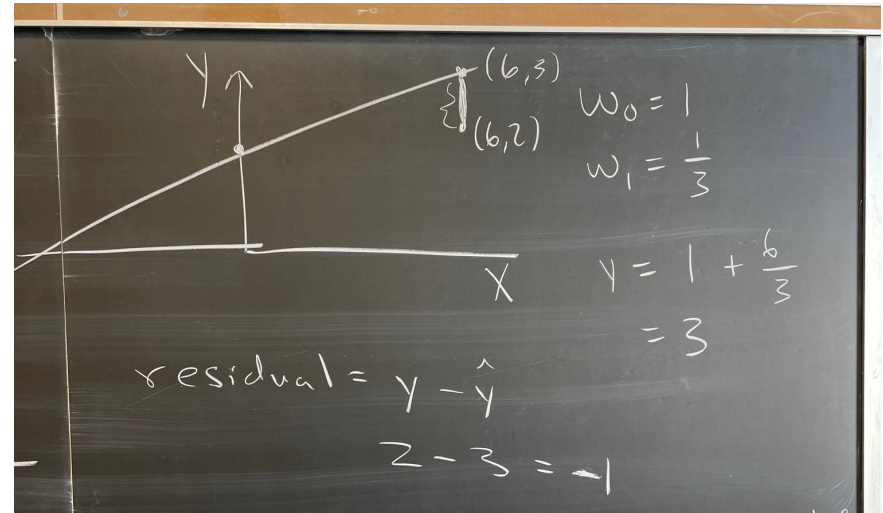 Y
(6,3)
(6,2)
w₀ = 1
w₁ = 1/3
X
y = 1 + 6/3
= 3
residual = y - ŷ
2 - 3 = -1